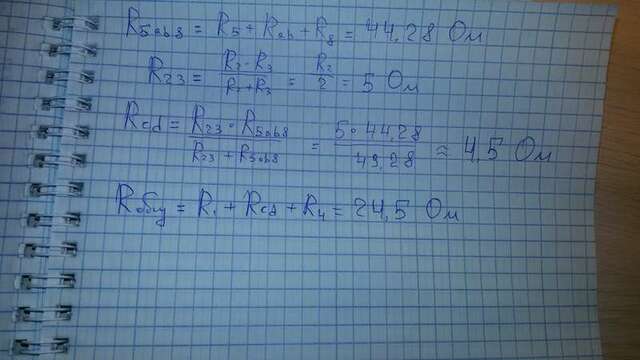 R5ab8 = R5 + Rab + R8 = 44,28 Ом
R23 = R2 · R3 / R + R3 = R2 / 2 = 5 Ом
Rcd = R23 · R5ab8 / R23 + R5ab8 = 5 · 44,28 / 49,28 ≈ 4,5 Ом
Rобщ = R1 + Rcd + R4 = 24,5 Ом